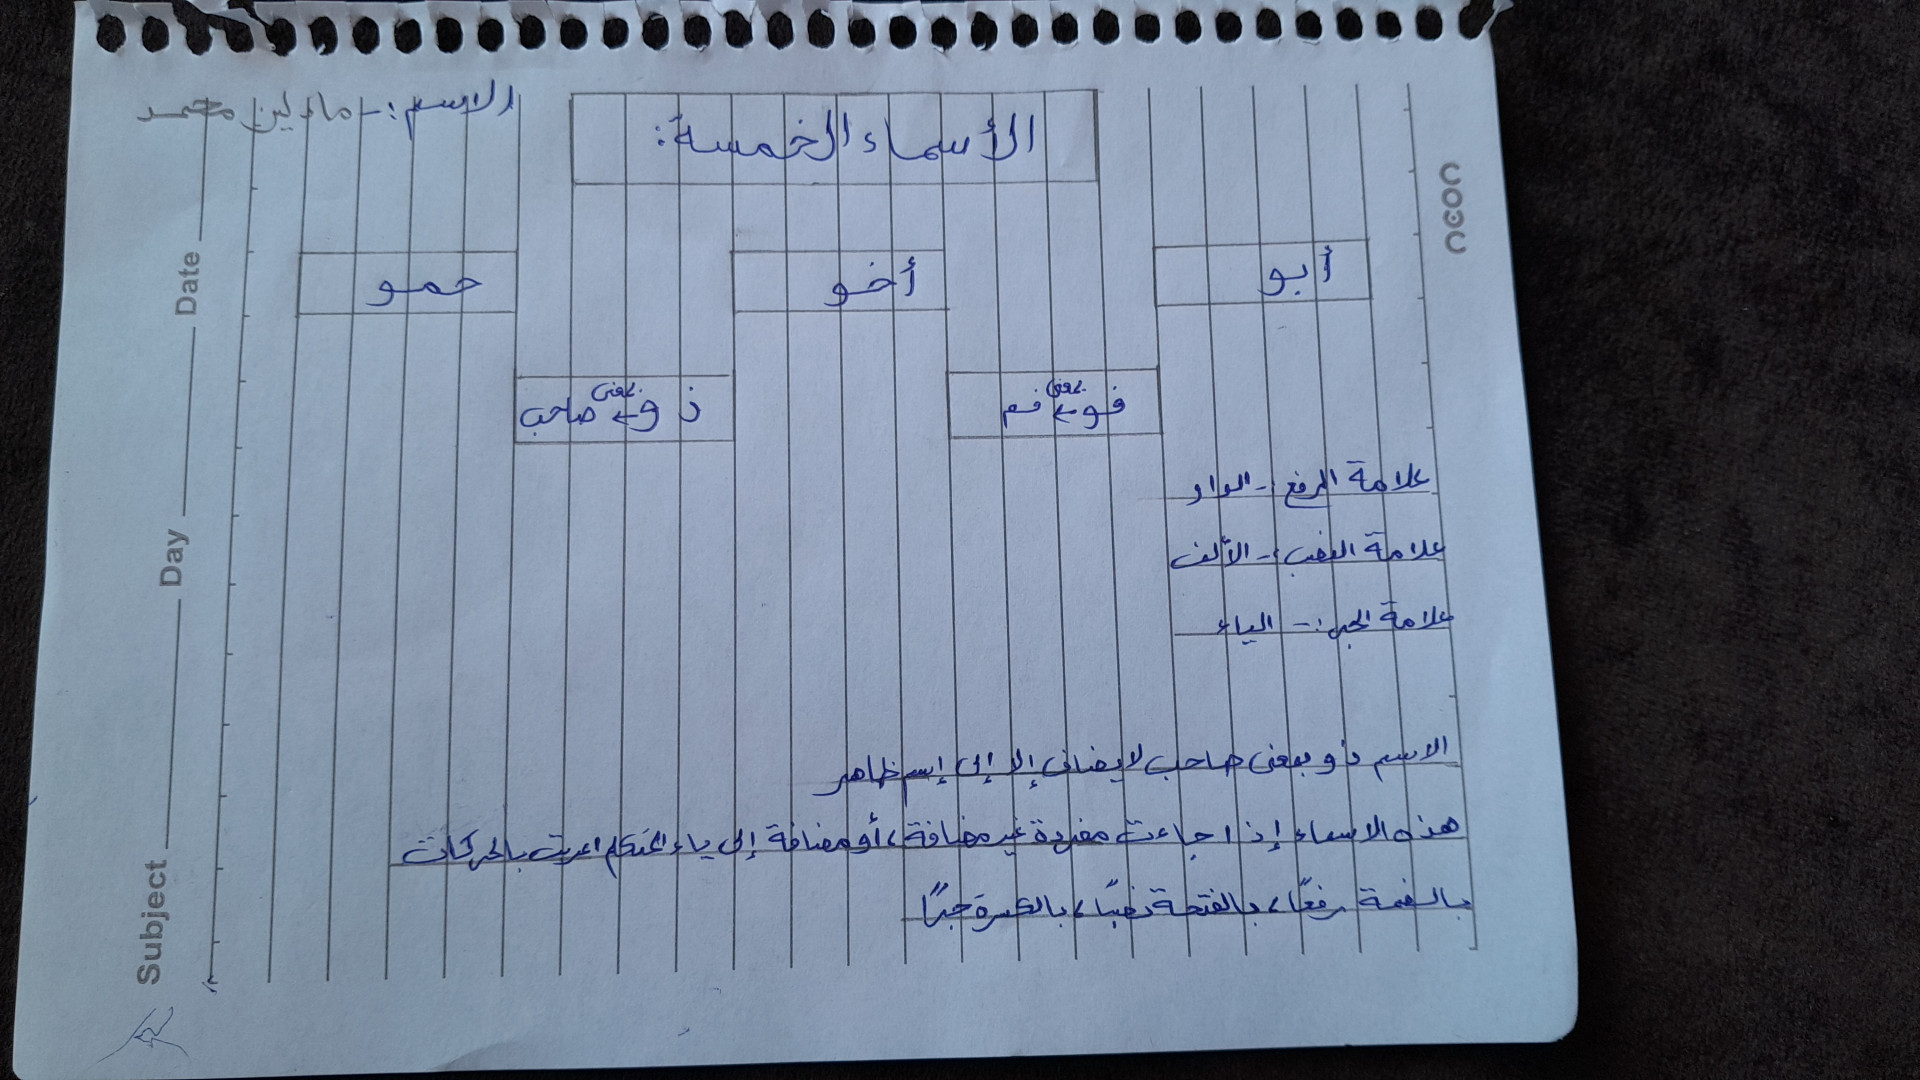 الاسم :- مادلين محمد
الأسماء الخمسة:
أبو
أخو
حمو
فو ← بمعنى فم
ذو ← بمعنى صاحب
علامة الرفع :- الواو
علامة النصب :- الألف
علامة الجر :- الياء
الاسم ذو بمعنى صاحب لا يضاف إلا إلى إسم ظاهر
هذه الاسماء إذا جاءت مفردة غير مضافة ، أو مضافة إلى ياء المتكلم اعربت بالحركات
بالضمة رفعًا ، بالفتحة نصبًا ، بالكسرة جرًا
noon
Subject
Day
Date